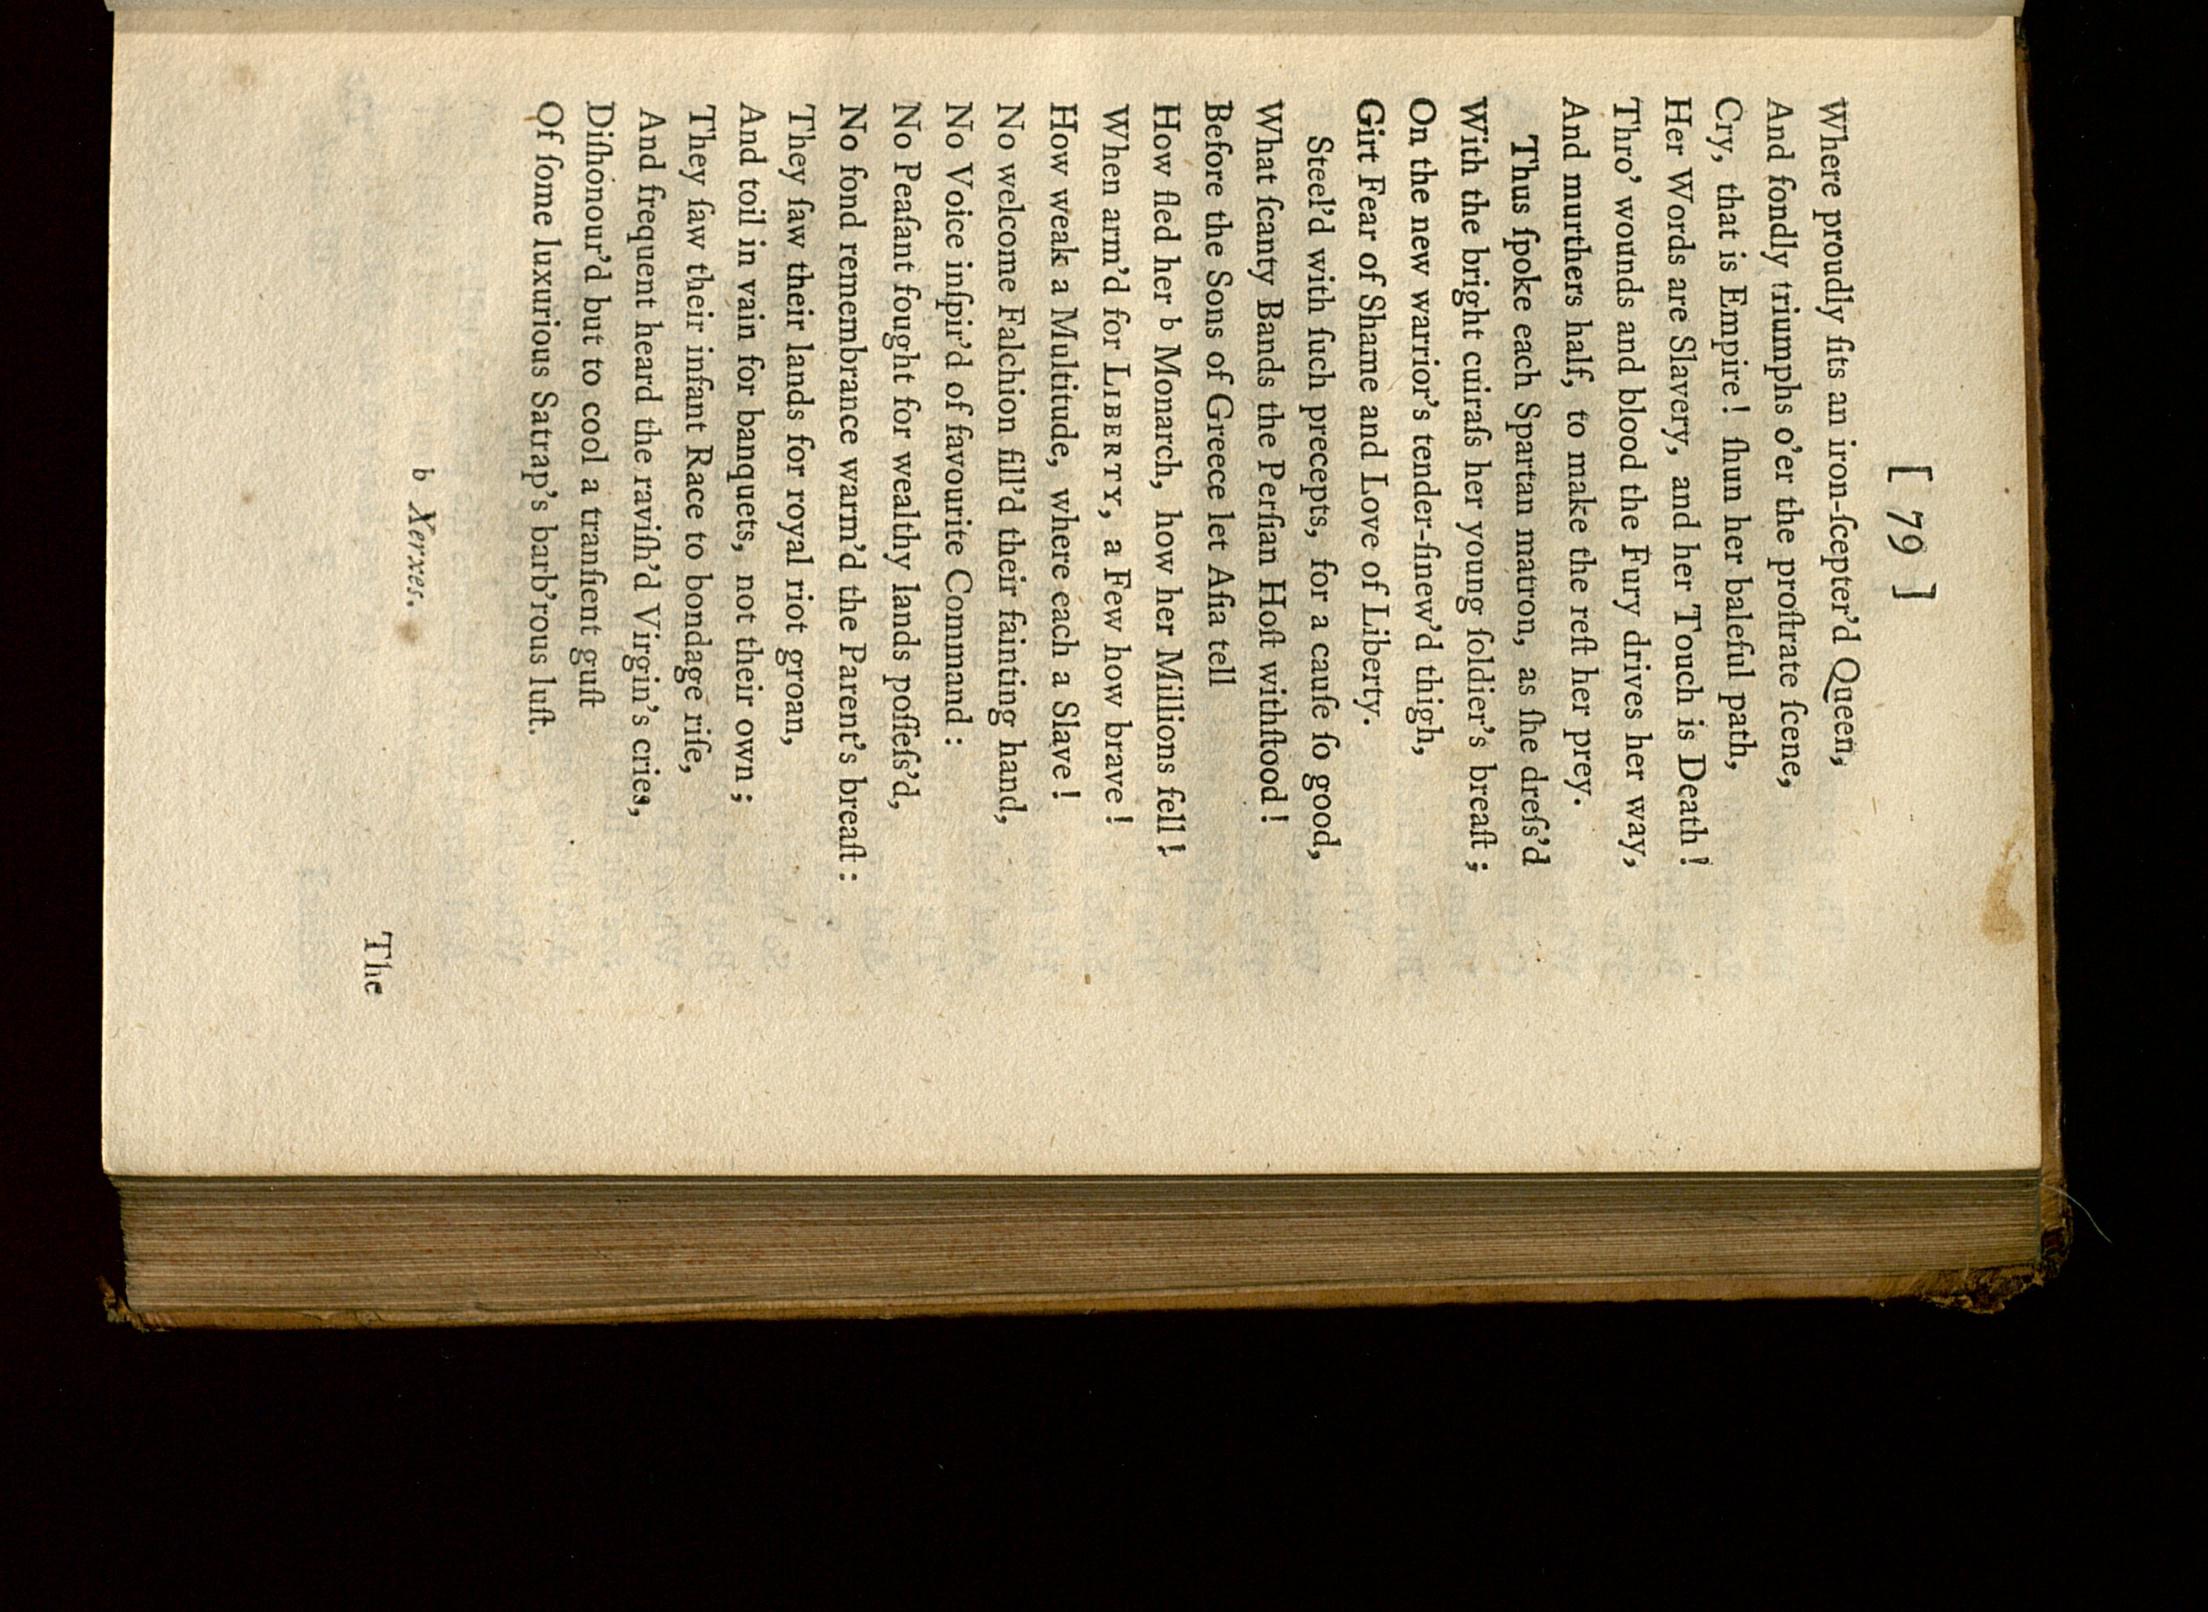 [ 79 ]
Where proudly ſits an iron-ſcepter'd Queen,
And fondly triumphs o'er the proſtrate ſcene,
Cry, that is Empire! ſhun her baleful path,
Her Words are Slavery, and her Touch is Death!
Thro' wounds and blood the Fury drives her way,
And murthers half, to make the reſt her prey.
Thus ſpoke each Spartan matron, as ſhe dreſs'd
With the bright cuiraſs her young ſoldier's breaſt;
On the new warrior's tender-ſinew'd thigh,
Girt Fear of Shame and Love of Liberty.
Steel'd with ſuch precepts, for a cauſe ſo good,
What ſcanty Bands the Perſian Hoſt withſtood!
Before the Sons of Greece let Aſia tell
How fled her b Monarch, how her Millions fell!
When arm'd for LIBERTY, a Few how brave!
How weak a Multitude, where each a Slave!
No welcome Falchion fill'd their fainting hand,
No Voice inſpir'd of favourite Command:
No Peaſant fought for wealthy lands poſſeſs'd,
No fond remembrance warm'd the Parent's breaſt:
They ſaw their lands for royal riot groan,
And toil in vain for banquets, not their own;
They ſaw their infant Race to bondage riſe,
And frequent heard the raviſh'd Virgin's cries,
Diſhonour'd but to cool a tranſient guſt
Of ſome luxurious Satrap's barb'rous luſt.
b Xerxes.
The